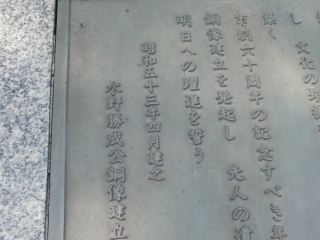 し 文化の
深く
市制六十周年の記念すべき年
銅像建立を発起し 先人の遺
明日への躍進を誓う
昭和五十三年四月建之
水野勝成公銅像建立